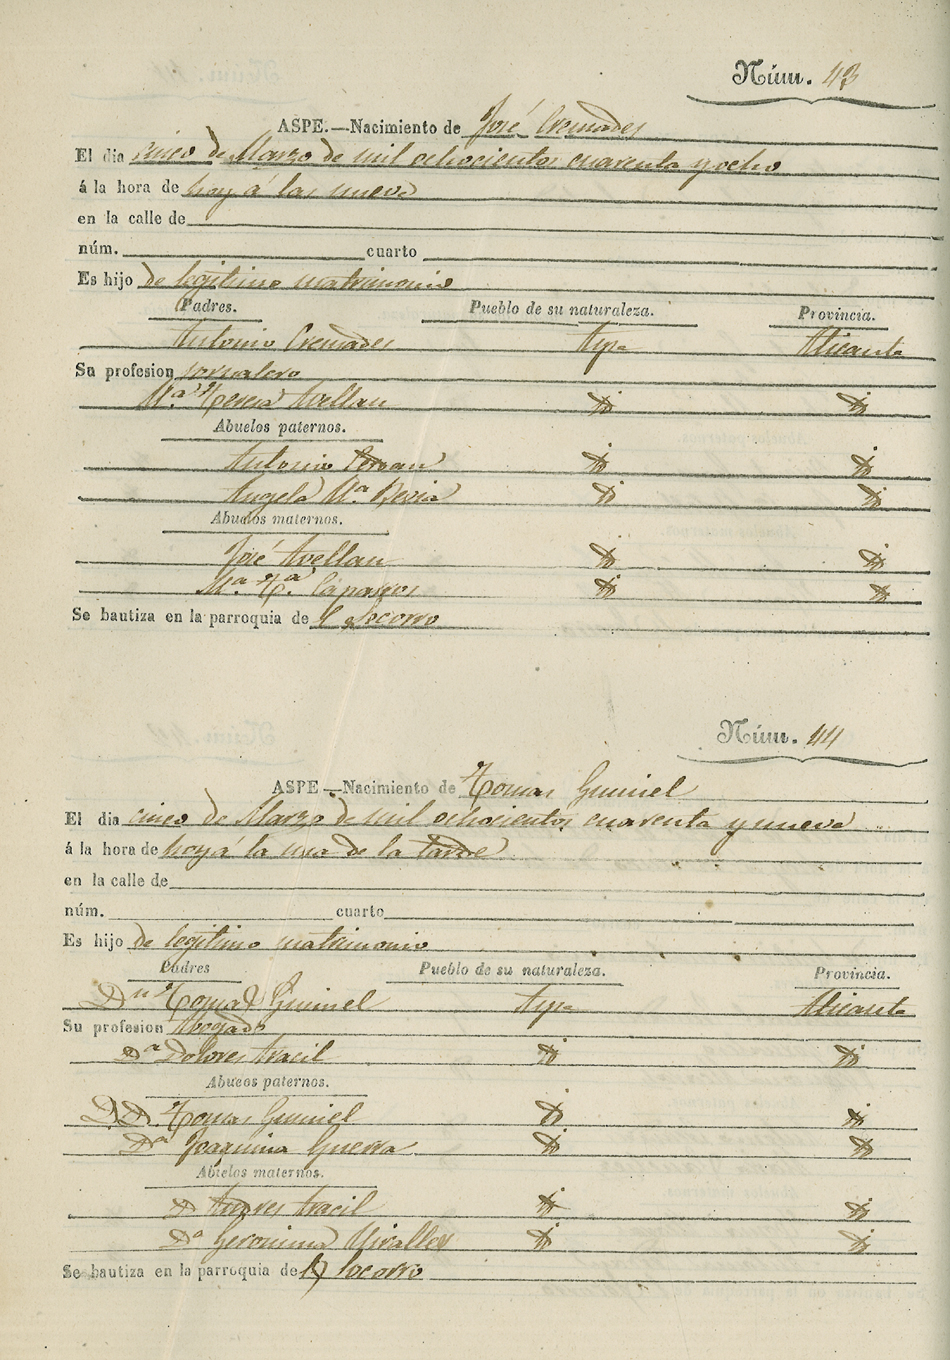 Núm. 43
ASPE.—Nacimiento de José Cremades
El dia cinco de Marzo de mil ochocientos cuarenta y ocho
á la hora de hoy á las nueve
en la calle de
núm. cuarto
Es hijo de legitimo matrimonio
Padres. Pueblo de su naturaleza. Provincia.
Antonio Cremades Aspe Alicante
Su profesion jornalero
M.ª Teresa Avellan id id
Abuelos paternos.
Antonio id id
Angela M.ª id id
Abuelos maternos.
José Avellan id id
M.ª T.ª Caparros id id
Se bautiza en la parroquia de l Socorro
Núm. 44
ASPE—Nacimiento de Tomas Gumiel
El dia cinco de Marzo de mil ochocientos cuarenta y nueve
á la hora de hoy á la una de la tarde
en la calle de
núm. cuarto
Es hijo de legitimo matrimonio
Padres Pueblo de su naturaleza. Provincia.
Dn Tomas Gumiel Aspe Alicante
Su profesion Abogado
Dª Dolores Aracil id id
Abueos paternos.
D. Tomas Gumiel id id
Dª Joaquina Guerra id id
Abuelos maternos.
D Andres Aracil id id
Dª Geronima Miralles id id
Se bautiza en la parroquia de l Socorro